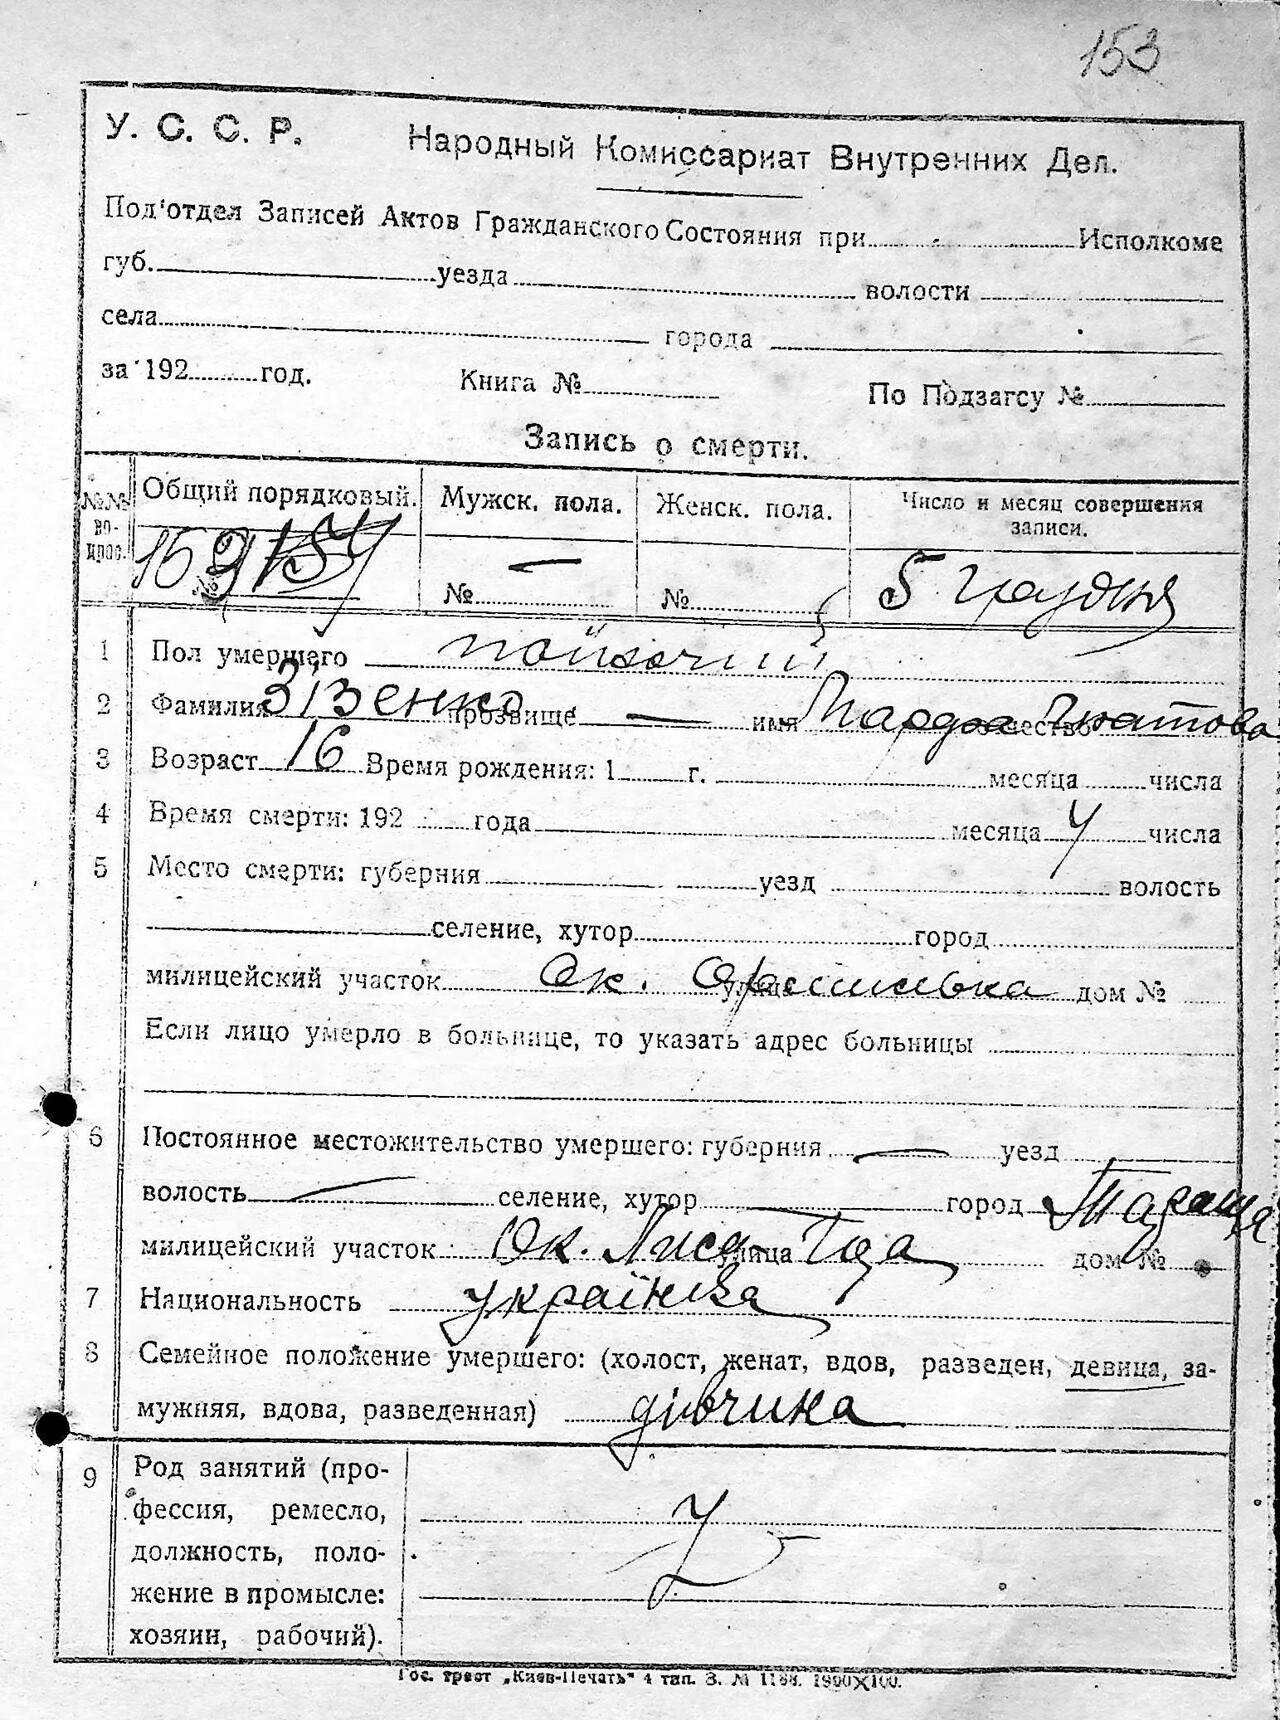 153
У. С. С. Р. Народный Комиссариат Внутренних Дел.
Под'отдел Записей Актов Гражданского Состояния при Исполкоме
губ. уезда волости
села города
за 192 год. Книга № По Подзагсу №
Запись о смерти.
№№ вопрос. Общий порядковый. Мужск. пола. Женск. пола. Число и месяц совершения записи.
№ 159 № — № 5 грудня
1 Пол умершего жіночий
2 Фамилия Зізенко прозвище — имя отчество Гнатова
3 Возраст 16 Время рождения: 1 г. месяца числа
4 Время смерти: 192 года месяца 4 числа
5 Место смерти: губерния уезд волость
селение, хутор город
милицейский участок Ок. улица дом №
Если лицо умерло в больнице, то указать адрес больницы
6 Постоянное местожительство умершего: губерния — уезд
волость — селение, хутор город Тараща
милицейский участок Ок. Лиса улица Гора дом №
7 Национальность українка
8 Семейное положение умершего: (холост, женат, вдов, разведен, девица, за-
мужняя, вдова, разведенная) дівчина
9 Род занятий (про-
фессия, ремесло,
должность, поло-
жение в промысле:
хозяин, рабочий).
Гос. трест „Киев-Печать" 4 тип. З. № 1188. 1990×100.